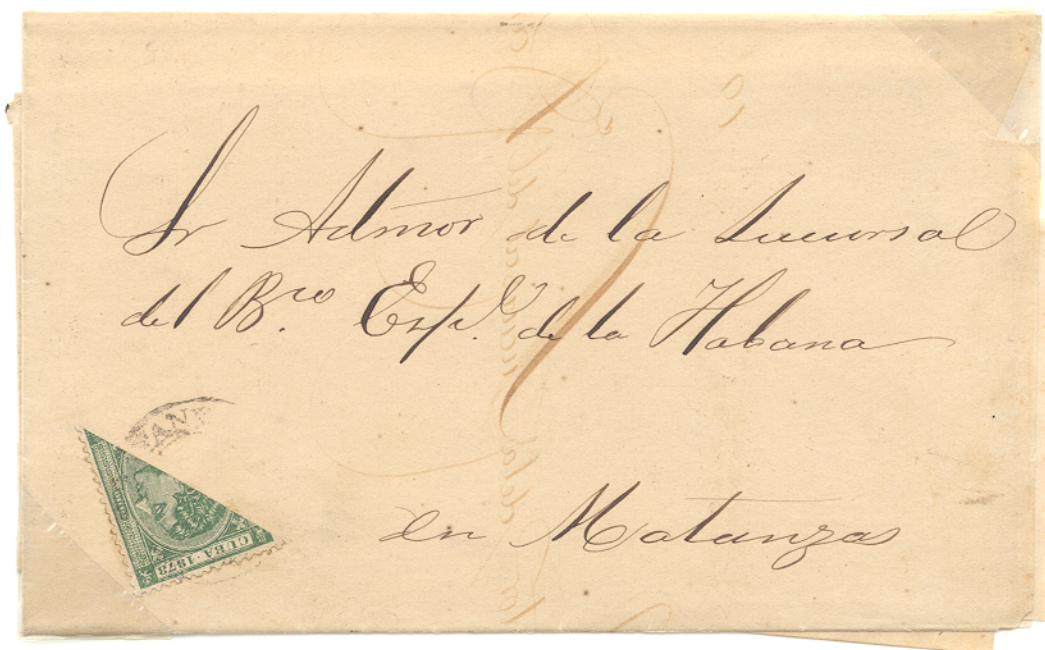 Sr Admor de la Sucursal
del Bco Espl. de la Habana
en Matanzas
CUBA · 1878